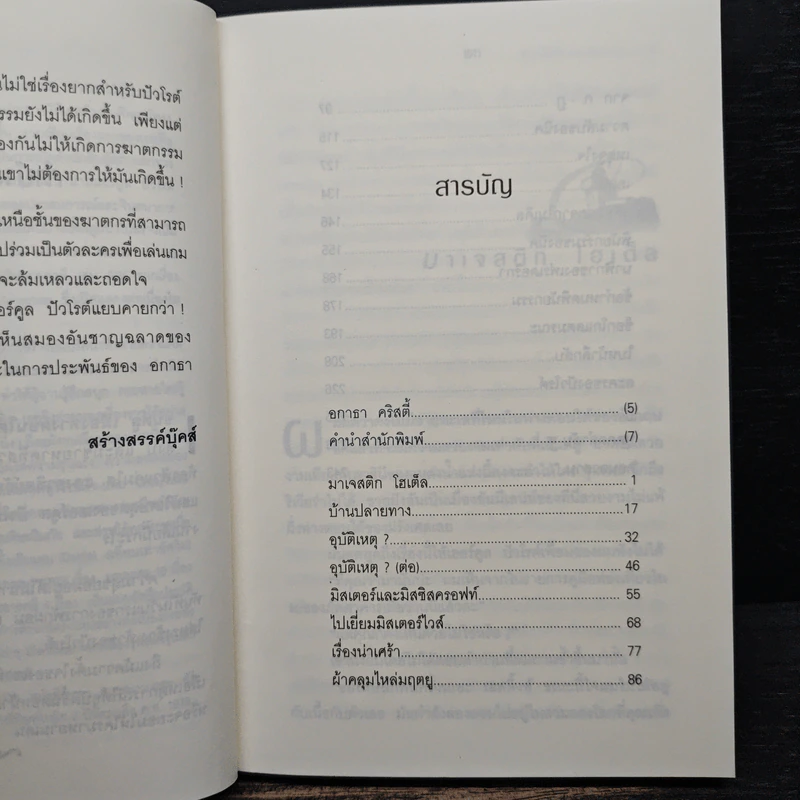 นไม่ใช่เรื่องยากสำหรับปัวโรต์
รรมยังไม่ได้เกิดขึ้น เพียงแต่
องกันไม่ให้เกิดการฆาตกรรม
เขาไม่ต้องการให้มันเกิดขึ้น !
เหนือชั้นของฆาตกรที่สามารถ
ปร่วมเป็นตัวละครเพื่อเล่นเกม
จะล้มเหลวและถอดใจ
อร์คูล ปัวโรต์แยบคายกว่า !
ห็นสมองอันชาญฉลาดของ
ะในการประพันธ์ของ อกาธา
สร้างสรรค์บุ๊คส์
สารบัญ
อกาธา คริสตี้ (5)
คำนำสำนักพิมพ์ (7)
มาเจสติก โฮเต็ล 1
บ้านปลายทาง 17
อุบัติเหตุ ? 32
อุบัติเหตุ ? (ต่อ) 46
มิสเตอร์และมิสซิสครอฟท์ 55
ไปเยี่ยมมิสเตอร์ไวส์ 68
เรื่องน่าเศร้า 77
ผ้าคลุมไหล่มฤตยู 86